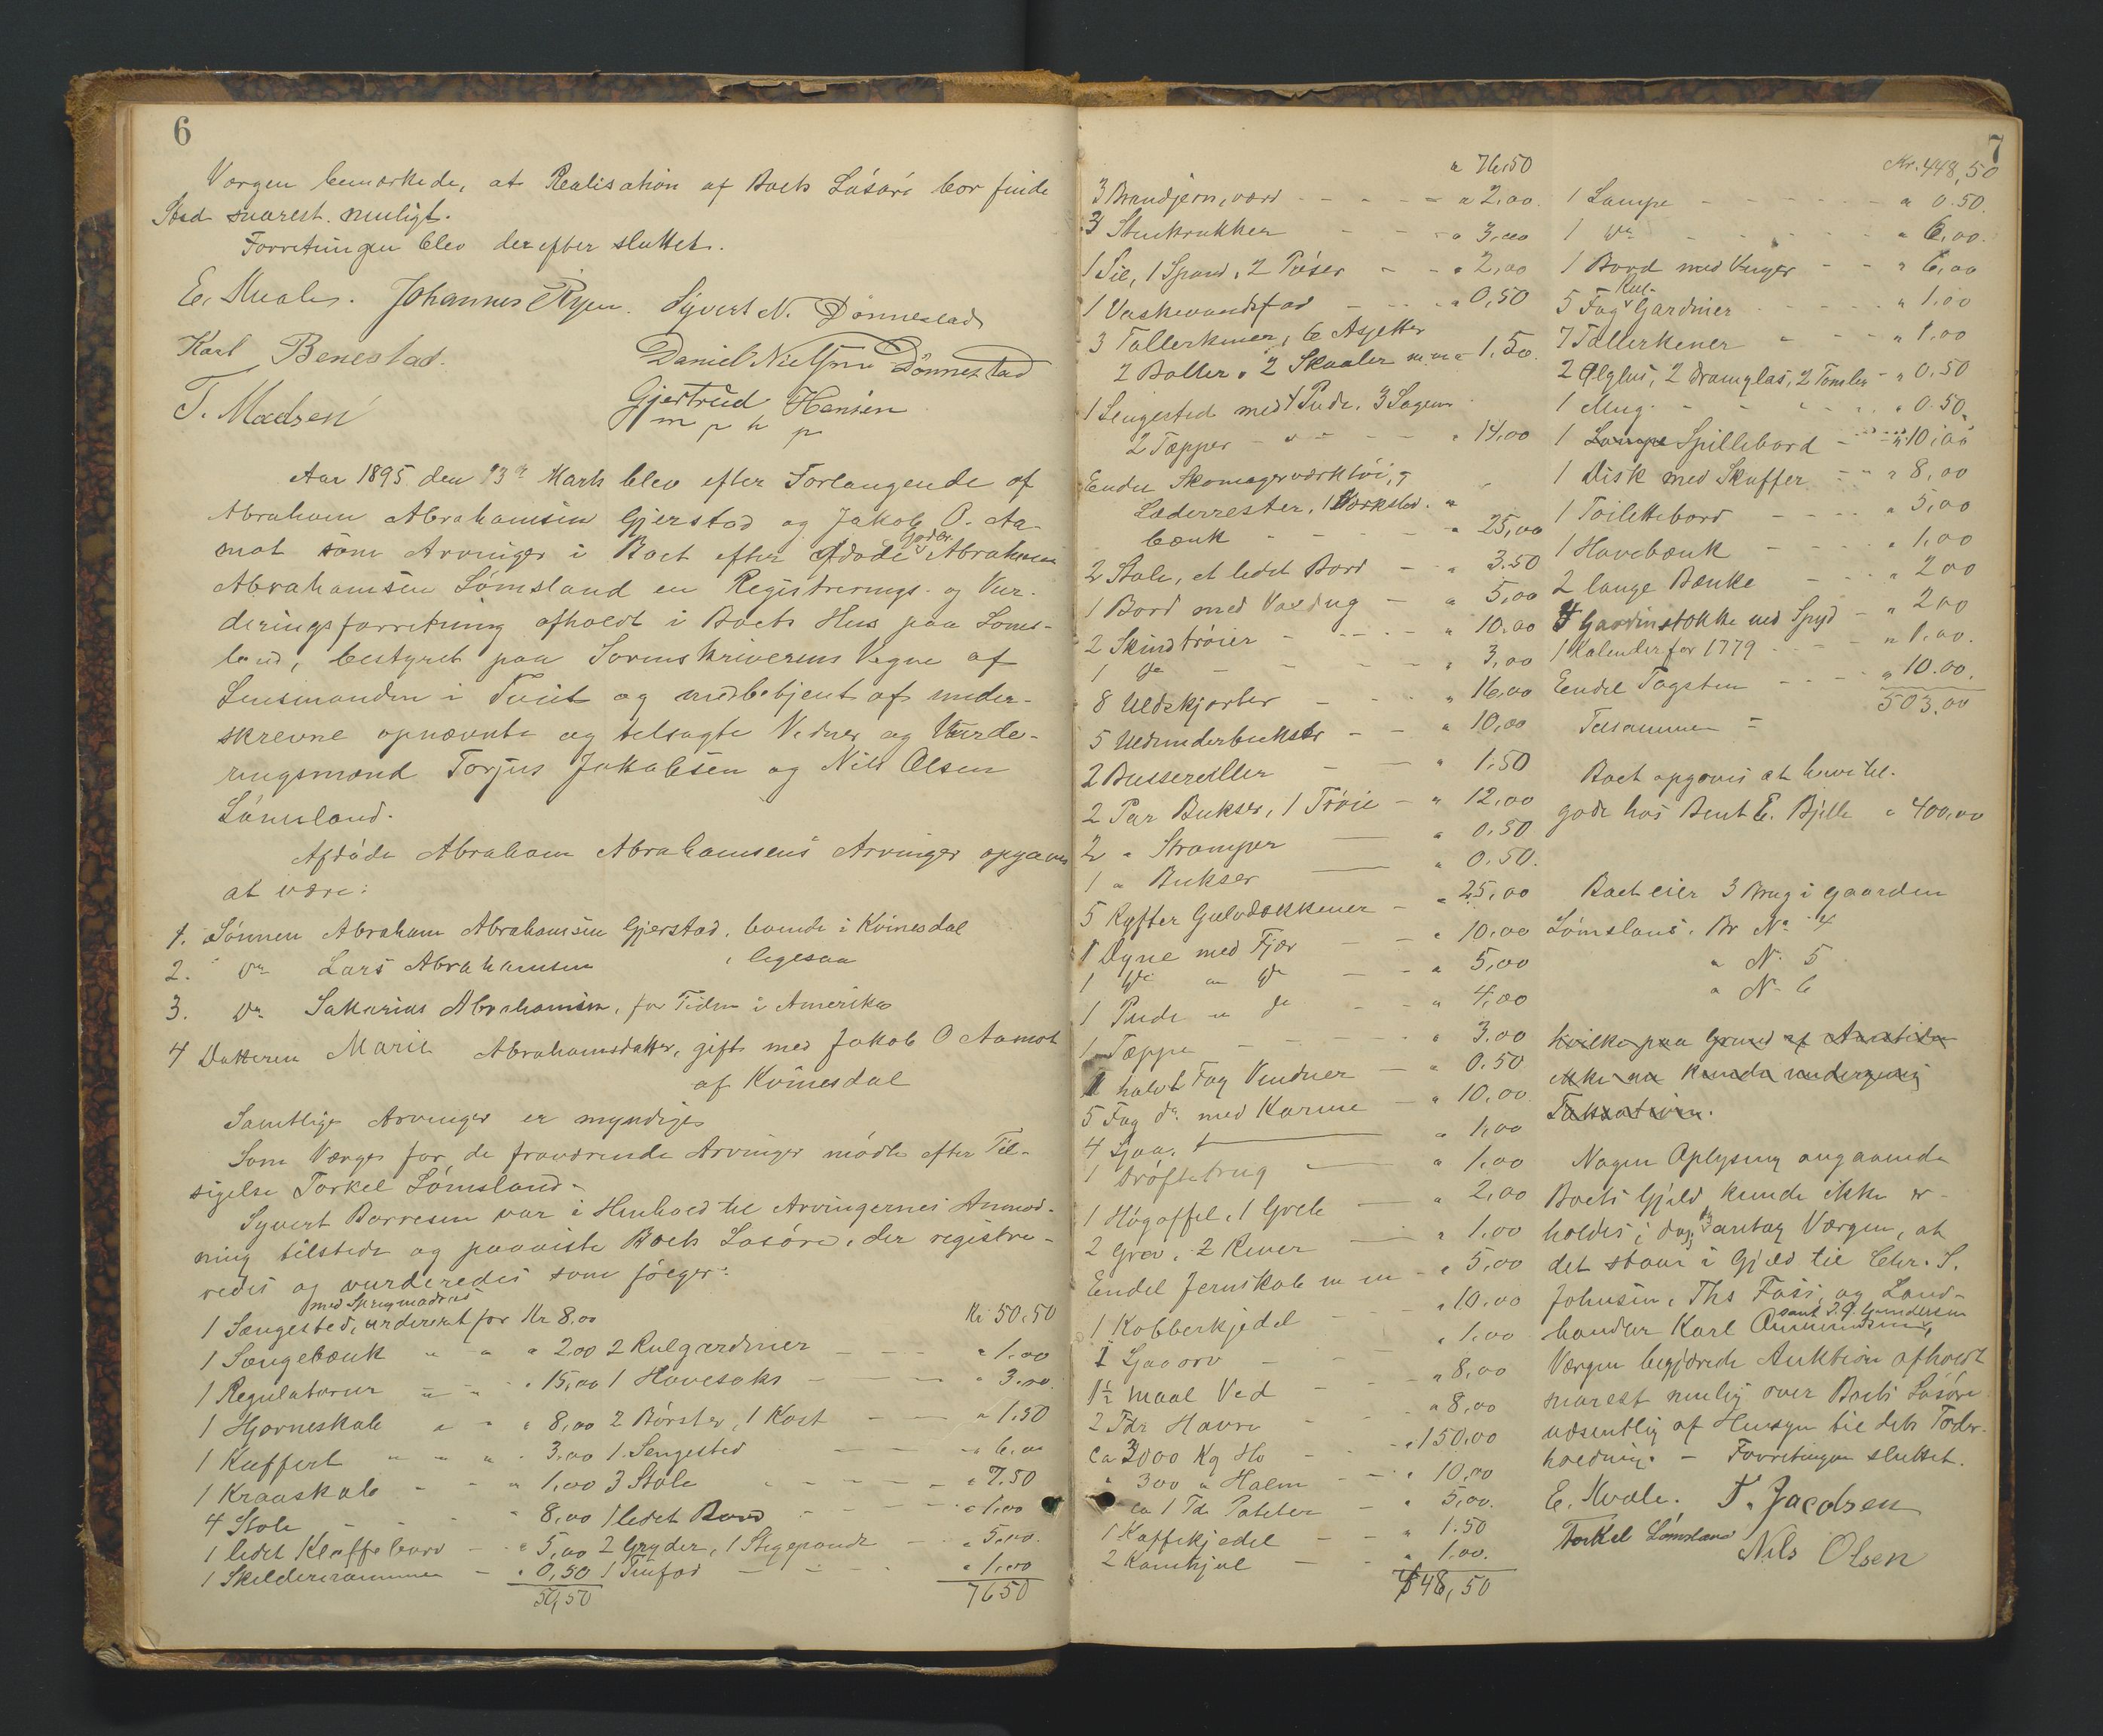 6
Værgen bemærkede, at Realisation af Boets Løsøre bør finde
Sted snarest muligt.
Forretningen blev derefter sluttet.
E. Kvale. Johannes Ryen. Syvert N. Dønnestad
Karl Benestad. Daniel Nielsen Dønnestad
T. Madsen Gjertrud Hansen
m p h p
Aar 1895 den 13de Marts blev efter Forlangende af
Abraham Abrahamsen Gjerstad og Jakob O. Aa-
mot som Arvinger i Boet efter afdøde Abraham
Abrahamsen Lømsland en Registrerings- og Vur-
deringsforretning afholdt i Boets Hus paa Løms-
land, bestyret paa Sorenskriverens Vegne af
Lensmanden i Tveit og medbetjent af under-
skrevne opnævnte og tilsagte Vidner og Vurde-
ringsmænd Torjus Jakobsen og Nils Olsen
Lømsland.
Afdøde Abraham Abrahamsens Arvinger opgaves
at være:
1. Sønnen Abraham Abrahamsen Gjerstad, boende i Kvinesdal
2. do Lars Abrahamsen, ligesaa
3. do Sakarias Abrahamsen, for Tiden i Amerika
4 Datteren Marie Abrahamsdatter, gift med Jakob O Aamot
af Kvinesdal
Samtlige Arvinger er myndige
Som Værge for de fraværende Arvinger mødte efter Til-
sigelse Torkel Lømsland.
Syvert Børresen var i Henhold til Arvingernes Anmod-
ning tilstede og paaviste Boets Løsøre, der registre-
redes og vurderedes som følger:
med Springmadras
1 Sængested, vurderet for Kr 8.00
1 Sængebænk " " " 2.00
1 Regulatorur " " " 15,00
1 Hjørneskab " " " 8,00
1 Kuffert " " " 3.00
1 Kraaskab - " " 1,00
4 Stole - - " 8,00
1 lidet Klaffebord - " 5,00
1 Skilderiramme - " 0,50
50,50
Kr 50,50
2 Rulgardiner - - " 1.00
1 Havesaks - - " 3.00
2 Børster, 1 Kost - - " 1.50
1 Sengested - - " 6.00
3 Stole - - " 7.50
1 lidet Bord - - " 1.00
2 Gryder, 1 Stegepande - " 5.00
1 Tinfad - - " 1.00
7650
" 76.50
3 Brandjern, vard - - - " 2,00
3 Stenkrukker - - " 3,00
1 Sil, 1 Spand, 2 Pøser - - " 2,00
1 Vaskevandsfad - - " 0,50
3 Tallerkener, 6 Asjetter
2 Boller, 2 Skaaler m m " 1.50.
1 Sengested med 1 Pude, 3 Lagen
2 Tæpper - - - " 14,00
Endel Skomagerværktøi,
Læderrester, 1 Værksted-
bænk - - - " 25,00
2 Stole, et lidet Bord - " 3.50
1 Bord med Voxdug - " 5,00
2 Skindtrøier - - " 10.00
1 do - - - " 3,00
8 Uldskjorter - - " 16,00
5 Uldunderbukser - - " 10,00
2 Busseruller - - " 1.50
2 Par Bukser, 1 Trøie - " 12,00
2 " Strømper — " 0.50
1 " Bukser — " 0.50.
5 Ryffter Gulvdækkener - " 25,00
1 Dyne med Fjær - - " 10.00
1 do " do - - " 5,00
1 Pude " do - - " 4,00
1 Tæppe - - - " 3.00
1 halvt Fag Vinduer - " 0.50
5 Fag do. med Karme - " 10,00.
4 Ljaa. — " 1,00
1 Drøftetrug — " 1.00
1 Høgaffel, 1 Greb — " 2,00
2 Grev, 2 River — " 1.00
Endel Jernskab m m - " 5,00
1 Kobberkjedel - " 10.00
1 Ljaaorv - - " 1.00
1½ Maal Ved - - " 8,00
2 Tdr Havre - - " 8,00
Ca 3000 Kg Hø - - " 150.00
" 300 " Halm - - " 10,00
ca 1 Td. Poteter - " 5,00.
1 Kaffekjedel - - " 1.50
2 Kamhjul - - " 1.00.
448,50
7
Kr. 448,50
1 Lampe - - - " 0.50.
1 do - - - " 6,00.
1 Bord med Vinger - - " 6,00
Rul-
5 Fag Gardiner - - " 1.00
7 Tallerkener " - - " 1.00
2 Ølglas, 2 Dramglas, 2 Tomler - " 0.50
1 Mug. - - - " 0.50
1 Lampe Spillebord - - " 10,00
1 Disk med Skuffer - - " 8,00
1 Toilettebord - - - " 5,00
1 Havebænk - - - " 1,00
2 lange Bænke - - - " 200
4 Gardinstokke med Spyd - " 200
1 Kalender for 1779 - - " 1.00.
Endel Tagsten - - - " 10.00.
Tilsammen = 503,00
Boet opgaves at have til-
gode hos Bent E. Bjelle " 400,00
Boet eier 3 Brug i Gaarden
Lømsland. Br No 4
" No 5
" No 6
hvilke paa Grund af
ikke nu kunde undergives
Taksation.
Nogen Oplysning angaaende
Boets Gjæld kunde ikke er-
holdes i Dag, dog antog Værgen, at
det staar i Gjæld til Chr. S.
Johnsen, Ths Fosi, og Land-
samt S. A. Gundersen
handler Karl Ommundsen,
Værgen begjærede Auktion afholdt
snarest mulig over Boets Løsøre
væsentlig af Hensyn til dets Foder-
holdning. - Forretningen sluttet.
E. Kvale. T. Jacobsen
Torkel Lømsland Nils Olsen